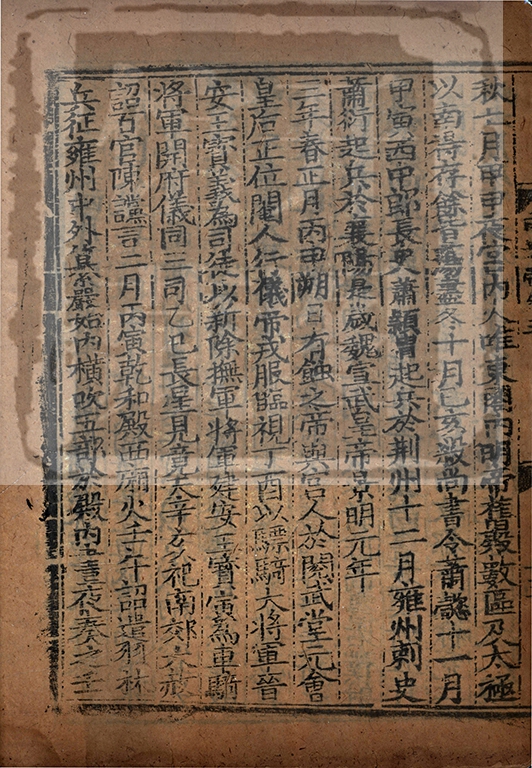 秋七月甲申夜宮內火唯東閣內明帝舊殿數區及太極
以南得存餘皆蕩盡冬十月己亥殺尚書令蕭懿十一月
甲寅西中郎長史蕭穎胄起兵於荆州十二月雍州刺史
蕭衍起兵於襄陽是歲魏宣武皇帝景明元年
三年春正月丙申朔日有蝕之帝與宮人於閱武堂元會
皇后正位閹人行儀帝戎服臨視丁酉以驃騎大將軍晉
安王寶義為司徒以新除撫軍將軍建安王寶寅為車騎
將軍開府儀同三司乙巳長星見竟天辛亥祀南郊大赦
詔百官陳讜言二月丙寅乾和殿西廂火壬午詔遣羽林
兵征雍州中外纂嚴始內橫吹五部於殿內晝夜奏之壬